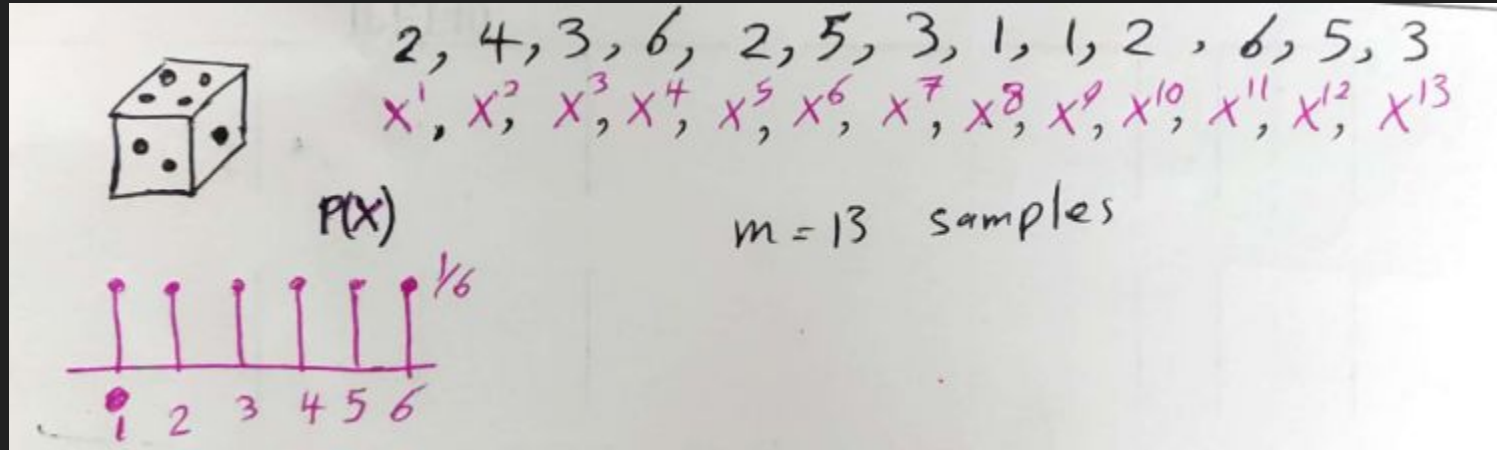 2, 4, 3, 6, 2, 5, 3, 1, 1, 2, 6, 5, 3
X¹, X², X³, X⁴, X⁵, X⁶, X⁷, X⁸, X⁹, X¹⁰, X¹¹, X¹², X¹³
P(X)
m = 13 samples
1/6
1 2 3 4 5 6